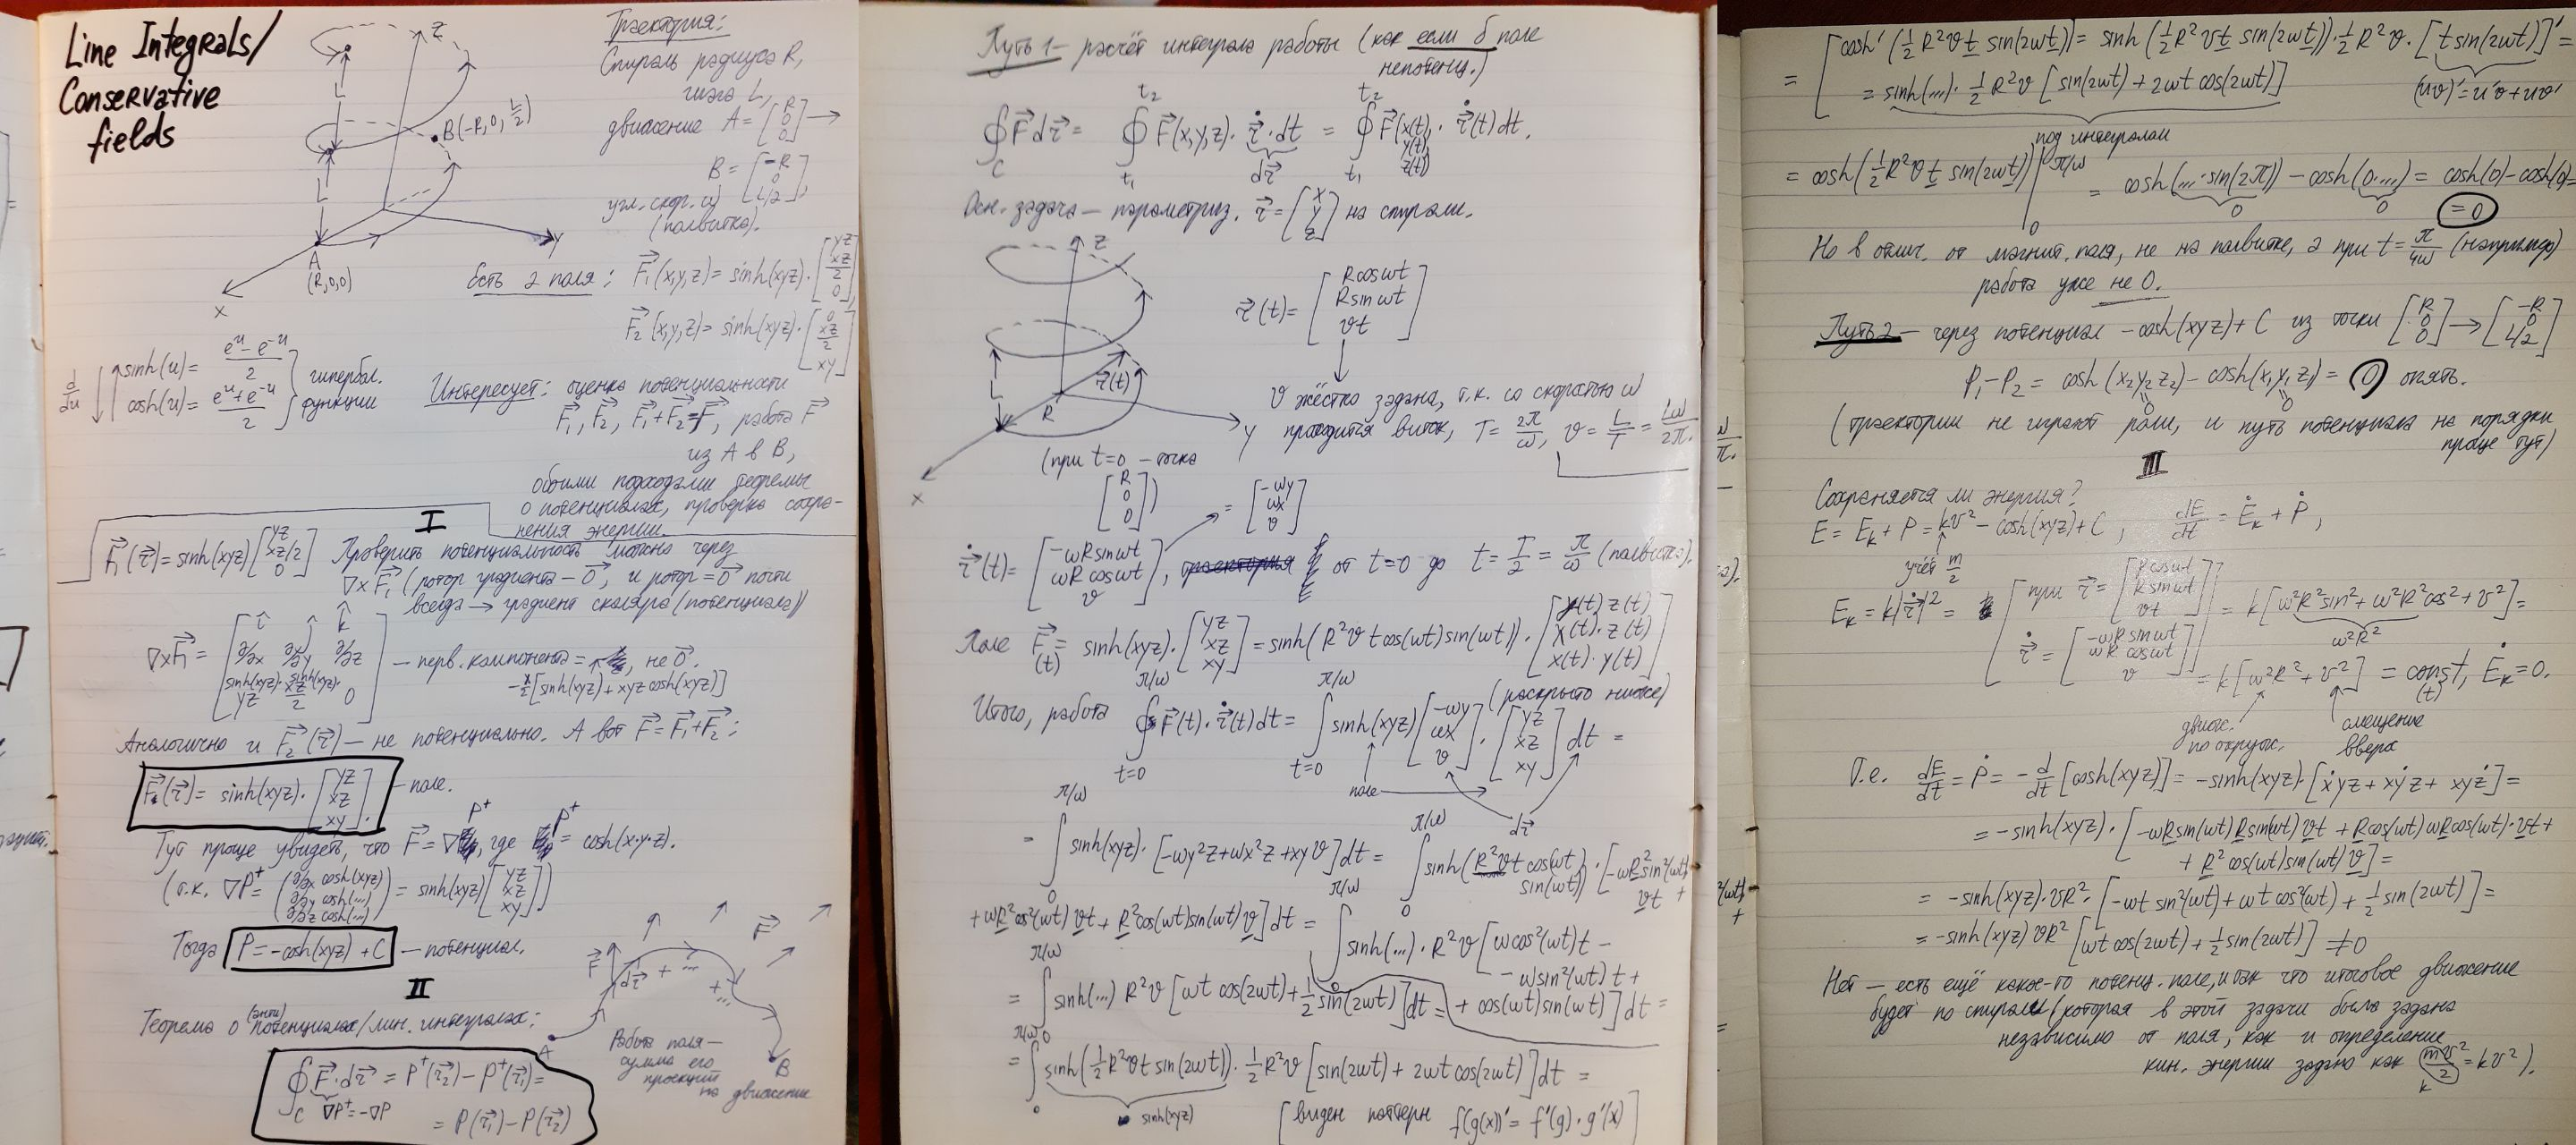 Line Integrals/
Conservative
fields
Z
Траектория:
Спираль радиуса R,
шага L,
движение A = [R 0 0] →
B = [-R 0 L/2],
угл. скор. ω
(полвитка).
L
B(-R, 0, L/2)
L
A
(R,0,0)
X
Y
Есть 2 поля: F⃗₁(x,y,z) = sinh(xyz)·[yz xz/2 0]
F⃗₂(x,y,z) = sinh(xyz)·[0 xz/2 xy]
d/du
sinh(u) = (eᵘ - e⁻ᵘ)/2
cosh(u) = (eᵘ + e⁻ᵘ)/2
гипербол.
функции
Интересует: оценка потенциальности
F⃗₁, F⃗₂, F⃗₁+F⃗₂=F⃗, работа F⃗
из A в B,
обоими подходами теоремы
о потенциалах, проверка сохра-
нения энергии.
I
F⃗₁(r⃗) = sinh(xyz)[yz xz/2 0]
Проверить потенциальность можно через
∇×F⃗₁ (ротор градиента – 0⃗, и ротор = 0⃗ почти
всегда → градиент скаляра (потенциала))
∇×F⃗₁ = [î ĵ k̂ ∂/∂x ∂/∂y ∂/∂z sinh(xyz)·yz sinh(xyz)·xz/2 0] – перв. компонента = , не 0⃗.
-x/2[sinh(xyz)+xyz cosh(xyz)]
Аналогично и F⃗₂(r⃗) – не потенциально. А вот F⃗ = F⃗₁+F⃗₂:
F⃗(r⃗) = sinh(xyz)·[yz xz xy]. – поле.
Тут проще увидеть, что F⃗ = ∇P⁺, где P⁺ = cosh(x·y·z).
(т.к. ∇P⁺ = (∂/∂x cosh(xyz) ∂/∂y cosh(...) ∂/∂z cosh(...)) = sinh(xyz)[yz xz xy])
Тогда P = -cosh(xyz) + C – потенциал.
II
Теорема о (анти)потенциалах/лин. интегралах:
∮_C F⃗·dr⃗ = P⁺(r⃗₂) - P⁺(r⃗₁) =
∇P⁺ = -∇P
= P(r⃗₁) - P(r⃗₂)
F⃗
dr⃗
+ ...
+...
F⃗
A
B
Работа поля –
сумма его
проекций
на движение
Путь 1 – расчёт интеграла работы (как если б поле
непотенц.)
∮_C F⃗dr⃗ = ∮_{t₁}^{t₂} F⃗(x,y,z)·ṙ⃗·dt = ∮_{t₁}^{t₂} F⃗(x(t), y(t), z(t))·ṙ⃗(t)dt.
dr⃗
Осн. задача – параметриз. r⃗ = [x y z] на спирали.
Z
L
R
r⃗(t)
Y
X
r⃗(t) = [Rcosωt Rsinωt vt]
v жёстко задана, т.к. со скоростью ω
проходится виток, T = 2π/ω, v = L/T = Lω/2π.
(при t=0 – точка
[R 0 0])
= [-ωy ωx v]
ṙ⃗(t) = [-ωRsinωt ωRcosωt v], от t=0 до t = T/2 = π/ω (полвитка).
Поле F⃗(t) = sinh(xyz)·[yz xz xy] = sinh(R²vtcos(ωt)sin(ωt))·[y(t)z(t) x(t)·z(t) x(t)·y(t)]
(раскрыто ниже)
Итого, работа ∮_{t=0}^{π/ω} F⃗(t)·ṙ⃗(t)dt = ∫_{t=0}^{π/ω} sinh(xyz)[-ωy ωx v]·[yz xz xy]dt =
поле
dr⃗
= ∫₀^{π/ω} sinh(xyz)·[-ωy²z+ωx²z+xyv]dt = ∫₀^{π/ω} sinh(R²vt cos(ωt) sin(ωt))·[-ωR²sin²(ωt) vt +
+ωR²cos²(ωt)vt + R²cos(ωt)sin(ωt)v]dt = ∫₀^{π/ω} sinh(...)·R²v[ωcos²(ωt)t -
- ωsin²(ωt)t +
+ cos(ωt)sin(ωt)]dt =
= ∫₀^{π/ω} sinh(...)R²v[ωtcos(2ωt)+½sin(2ωt)]dt =
= ∫₀^{π/ω} sinh(½R²vtsin(2ωt))·½R²v[sin(2ωt)+2ωtcos(2ωt)]dt =
sinh(xyz)
[виден паттерн f(g(x))' = f'(g)·g'(x)]
= [cosh'(½R²vt sin(2ωt)) = sinh(½R²vt sin(2ωt))·½R²v·[tsin(2ωt)]' =
= sinh(...)·½R²v[sin(2ωt)+2ωtcos(2ωt)]
(uv)' = u'v+uv'
под интегралом
= cosh(½R²vt sin(2ωt))|₀^{π/ω} = cosh(...·sin(2π)) - cosh(0·...) = cosh(0)-cosh(0)=
0
0
= 0
Но в отлич. от магнит. поля, не на полвитке, а при t = π/4ω (например)
работа уже не 0.
Путь 2 – через потенциал -cosh(xyz)+C из точки [R 0 0] → [-R 0 L/2]
P₁-P₂ = cosh(x₂y₂z₂) - cosh(x₁y₁z₁) = 0 опять.
0
0
(траектории не играют роли, и путь потенциала на порядки
проще тут)
III
Сохраняется ли энергия?
E = Eₖ + P = kv² - cosh(xyz)+C, dE/dt = Ėₖ + Ṗ,
учёт m/2
Eₖ = k|ṙ⃗|² = [при r⃗ = [Rcosωt Rsinωt vt] ṙ⃗ = [-ωRsinωt ωRcosωt v]] = k[ω²R²sin²+ω²R²cos²+v²] =
ω²R²
= k[ω²R²+v²] = const(t), Ėₖ=0.
движ.
по окруж.
смещение
вверх
Т.е. dE/dt = Ṗ = -d/dt[cosh(xyz)] = -sinh(xyz)·[ẋyz+xẏz+xyż] =
= -sinh(xyz)·[-ωRsin(ωt)Rsin(ωt)vt + Rcos(ωt)ωRcos(ωt)·vt +
+ R²cos(ωt)sin(ωt)v] =
= -sinh(xyz)·vR²·[-ωt sin²(ωt)+ωt cos²(ωt)+½sin(2ωt)] =
= -sinh(xyz)vR²[ωt cos(2ωt)+½sin(2ωt)] ≠0
Нет – есть ещё какое-то потенц. поле, и так что итоговое движение
будет по спирали (которая в этой задачи была задана
независимо от поля, как и определение
кин. энергии задано как mv²/2 = kv²).
k